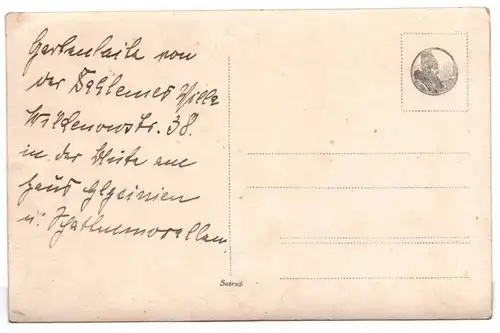 Gartenseite von
der Dahlemer Villa
Wildenowstr. 38.
in der Blüte am
Haus Glyzinien
u. Schattenmorellen
Satrap